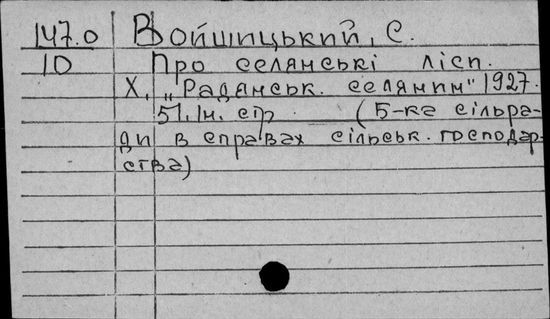 147.0 Войшицький, С.
10 Про селянські лісп.
Х. „Радянськ. селянин" 1927.
51.1н. стр. (Б-ка сільра-
ди в справах сільськ. господар-
ства)